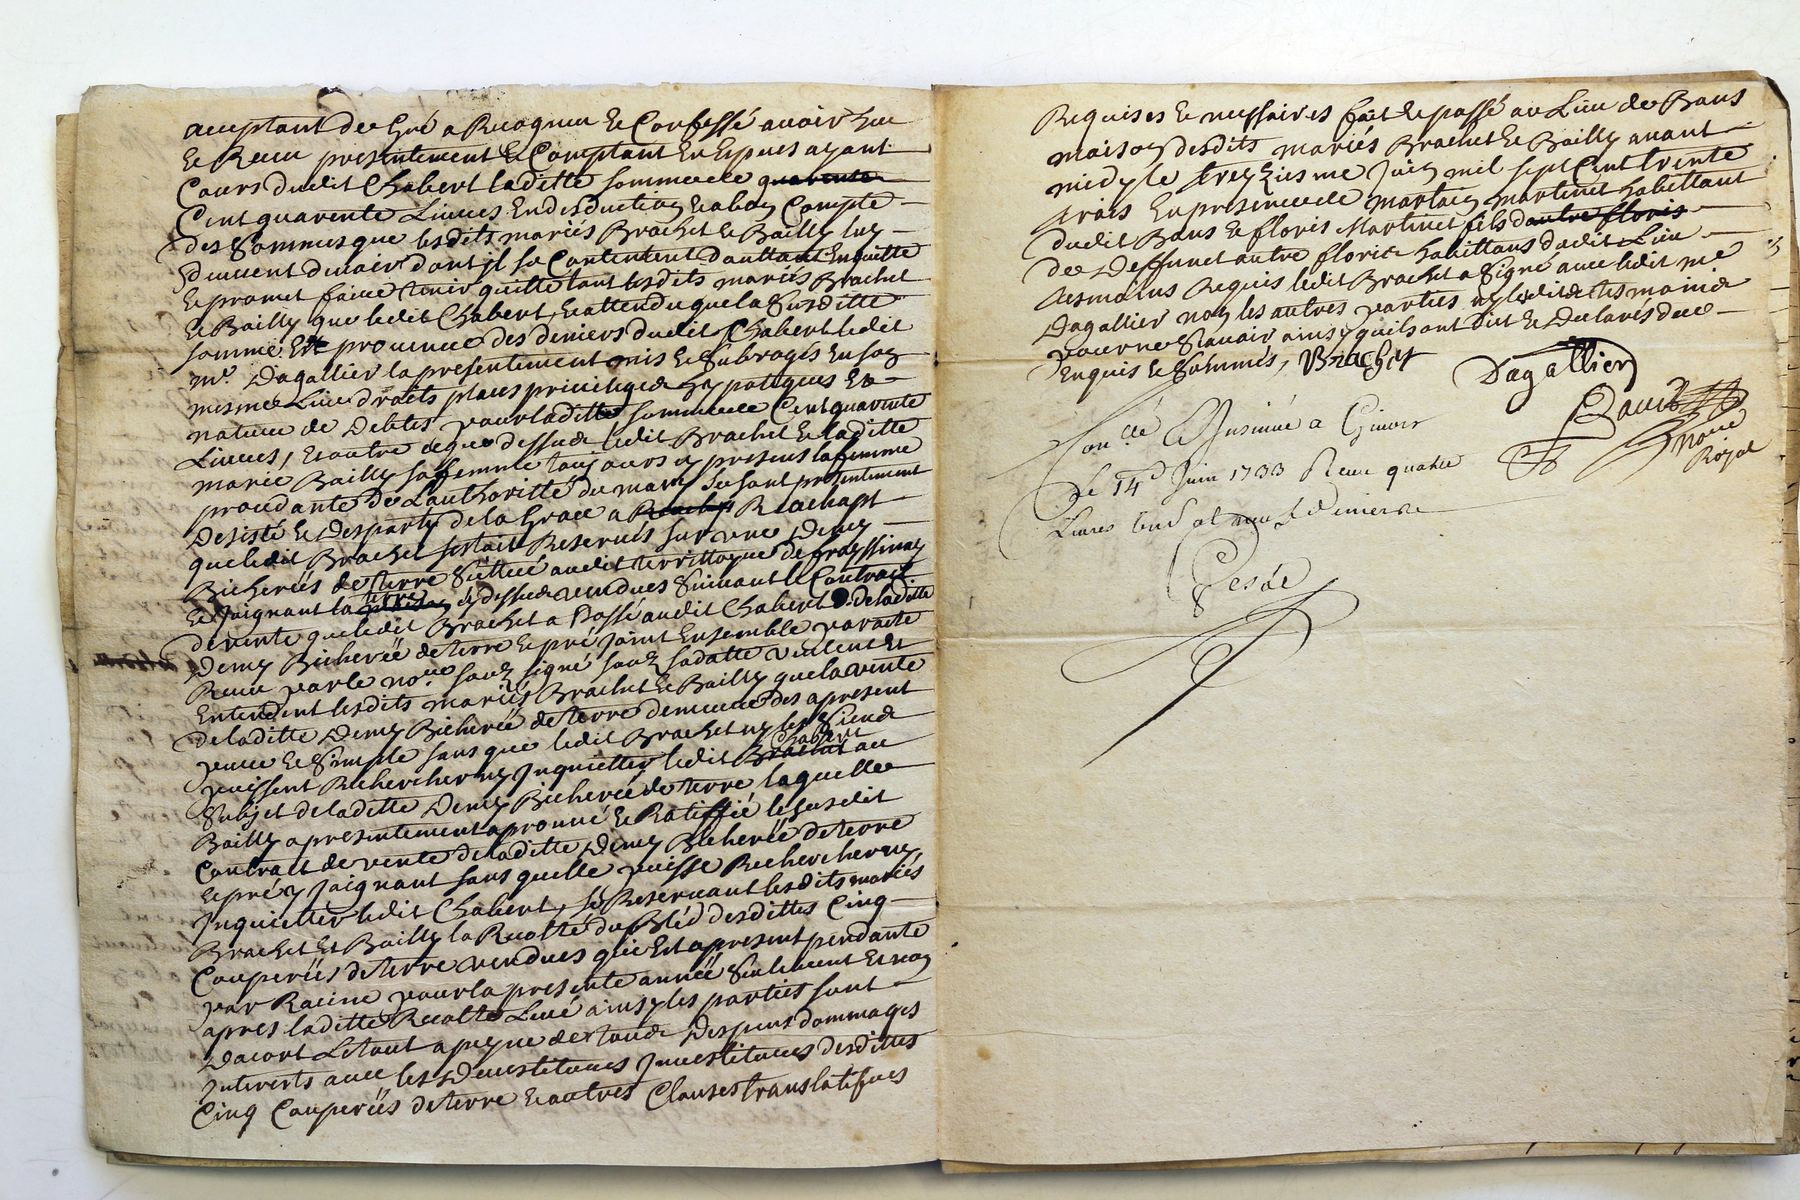 acceptant de Gré a Recognu et Confessé avoir Heu
et Receu presentement et Comptant En Espuces ayant
Cours dudit Chabert laditte somme de quarente
Cent quarente Livres En desduction et abon Compte
des sommes que lesdits mariés Brachet et Bailly luy
doivent devoir dont jl se Contentent dautant Enquitte
et promet faire tenir quitte tant lesdits mariés Brachet
et Bailly que ledit Chabert, et attendu que la susditte
somme Est provenue des deniers dudit Chabert ledit
me. Dagallier la presentement mis et subrogés En son
mesme Lieu droits place privileges hypotiques et
nature de debtes pour laditte somme de Cent quarente
Livres, et outre de que dessude ledit Brachet et laditte
marie Bailly sa femme toujours y present la femme
procedante de L'authoritté du mary se sont presentement
desisté et desparty de la Grace a Rachept Reachapt
que ledit Brachet sestait Reservés sur une demy
Bicherées de terre Situé audit territtoyre de frayssinay
et Joignant la terre cy dessude vendues suivant le Contract
de vente que ledit Brachet a Passé audit Chabert de laditte
demy Bicherée de terre et pré joint Ensemble par acte
Receu par le nore souz signé souz sa datte veulent et
Entendent lesdits mariés Brachet et Bailly que la vente
de laditte demy Bicherée de terre demeure des apresent
pure et simple sans que ledit Brachet ny les siens
puissent Rechercher ny Jnquietter ledit Brachet Chabert au
subjet de laditte demy Bicherée de terre laquelle
Bailly a presentement aprouvé et Ratiffié le susdit
Contract de vente de laditte demy Bicherée de terre
et pré y joignant sans quelle puisse Rechercher ny
Jnquietter ledit Chabert, se Reservant lesdits mariés
Brachet et Bailly la Recolte du Bléd desdittes Cinq
Couperées de terre vendues qui Est apresent pendante
par Racine pour la presente année seulement et non
apres laditte Recolte Levé ainsy les parties sont
dacort Letout apeyne de touds despens dommages
Jnterests avec les devestitures Jnvestitures desdittes
Cinq Couperées de terre et autres Clauses translatifves
Requises et nessaires fait et passé au Lieu de Bans
maison desdits mariés Brachet et Bailly avant
midy le treyziesme Juin mil sept Cent trente
trois En presence de martin martinet habittant
dudit Bans et floris Martinet fils dautre floris
de deffunct autre floris habittans dudit Lieu
tesmoins Requis ledit Brachet a signé avec ledit me
Dagallier non les autres parties ny lesdits tesmoins
pour ne sçavoir ainsy quils ont dit et declarés de ce
Enquis et sommés, Brachet
Dagallier
David
nore
Royal
Conlé et Jnsinué a Givors
Le 14e Juin 1733 Receu quatre
Livres un sol neuf deniers
Pesde